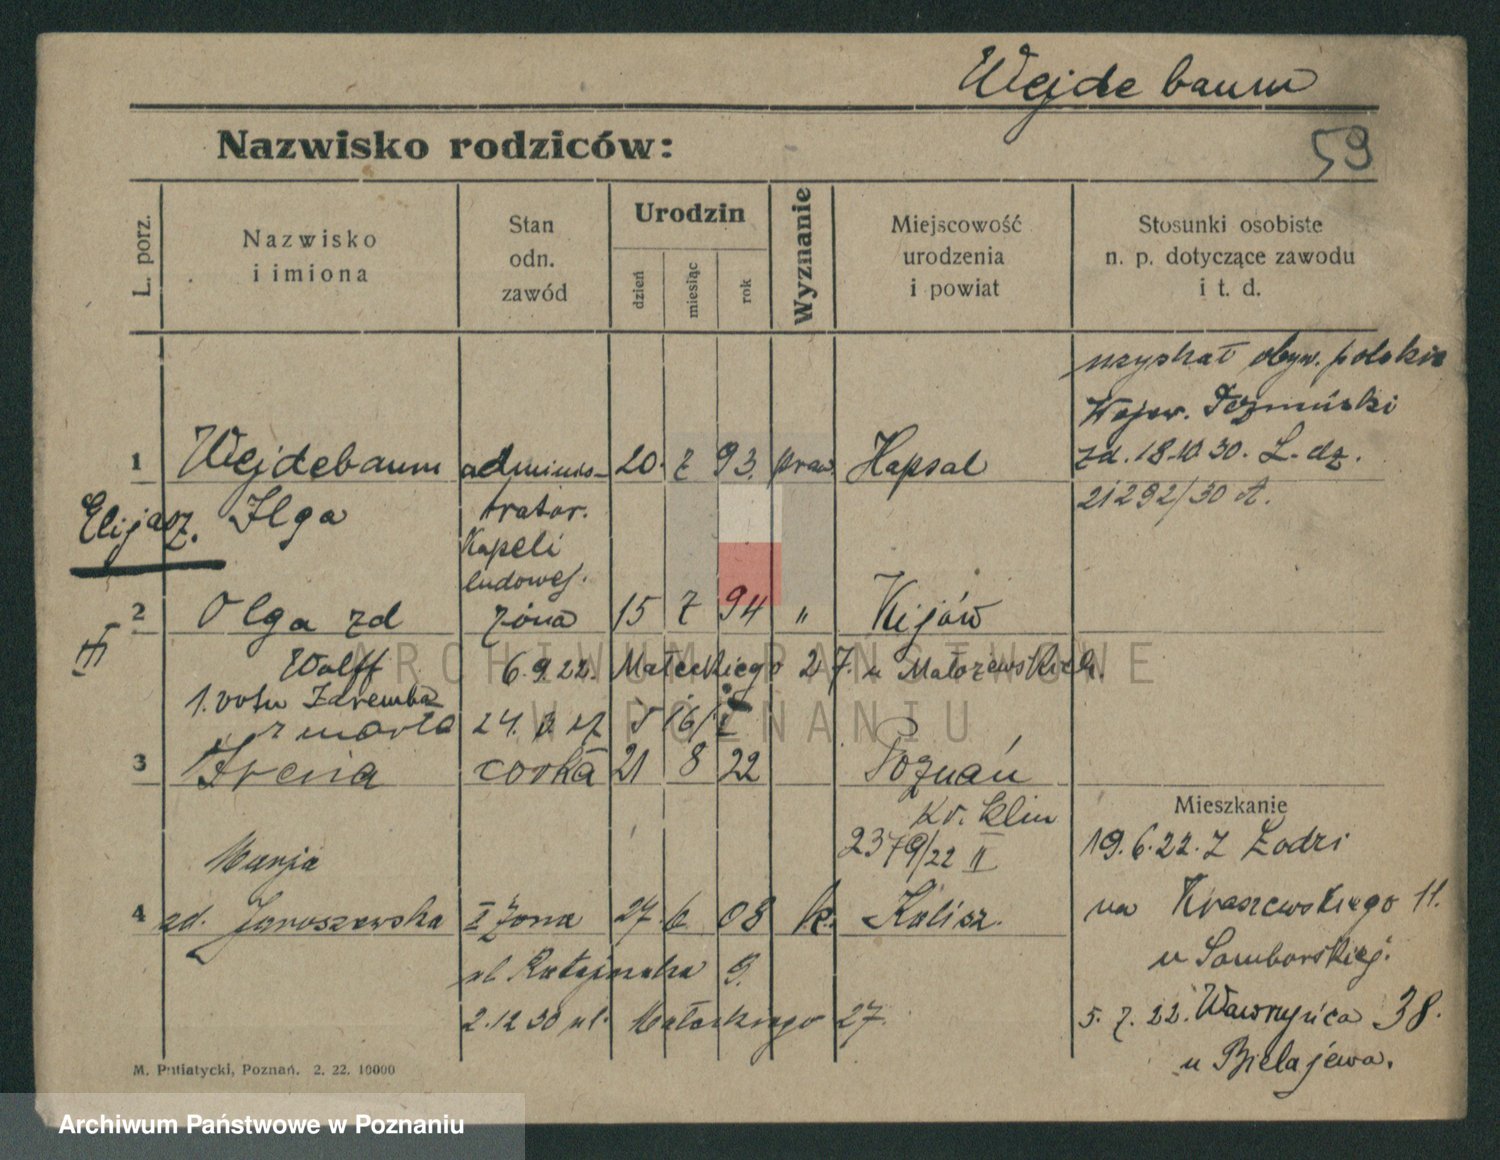 Wejdebaum
59
Nazwisko rodziców:
L. porz.
Nazwisko
i imiona
Stan
odn.
zawód
Urodzin
dzień
miesiąc
rok
Wyznanie
Miejscowość
urodzenia
i powiat
Stosunki osobiste
n. p. dotyczące zawodu
i t. d.
uzyskał obyw. polskie
Wojew. Poznański
zd. 18.10.30. L. dz.
21292/30 A.
1 Wejdebaum adminis- 20. 7 93. praw. Hapsal
Elijasz. Ilga trator.
Kapeli
ludowej.
2 Olga zd żona 15 7 94 " Kijów
Wolff 6.9.22. Małeckiego 27. u Małszewskich.
1. votu Zaremba
zmarła 24.
3 Irena córka 21 8 22 Poznań
kr. Elim
2379/22 II
Mieszkanie
19.6.22. z Łodzi
na Kraszewskiego 11.
u Samborskiej.
5. 7. 22. Wawrzyńca 38.
u Bielajewa.
Marja
4 zd. Jaroszewska II żona 27. 6 08 k. Kalisz.
ul. Ratajczaka 9.
2.12 30 ul. Małeckiego 27.
M. Putiatycki, Poznań. 2. 22. 10000
ARCHIWUM PAŃSTWOWE
W POZNANIU
Archiwum Państwowe w Poznaniu